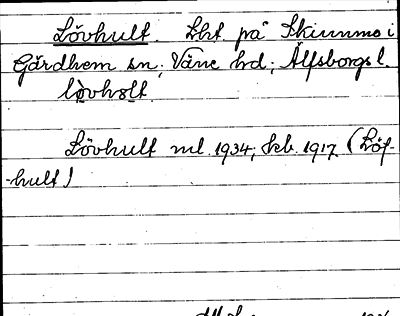 Lövhult. Lht. på Skinnmo i
Gärdhem sn; Väne hd; Älfsborgs l.
lövholt
Lövhult ml. 1934; kb. 1917 (Löf-
-hult)